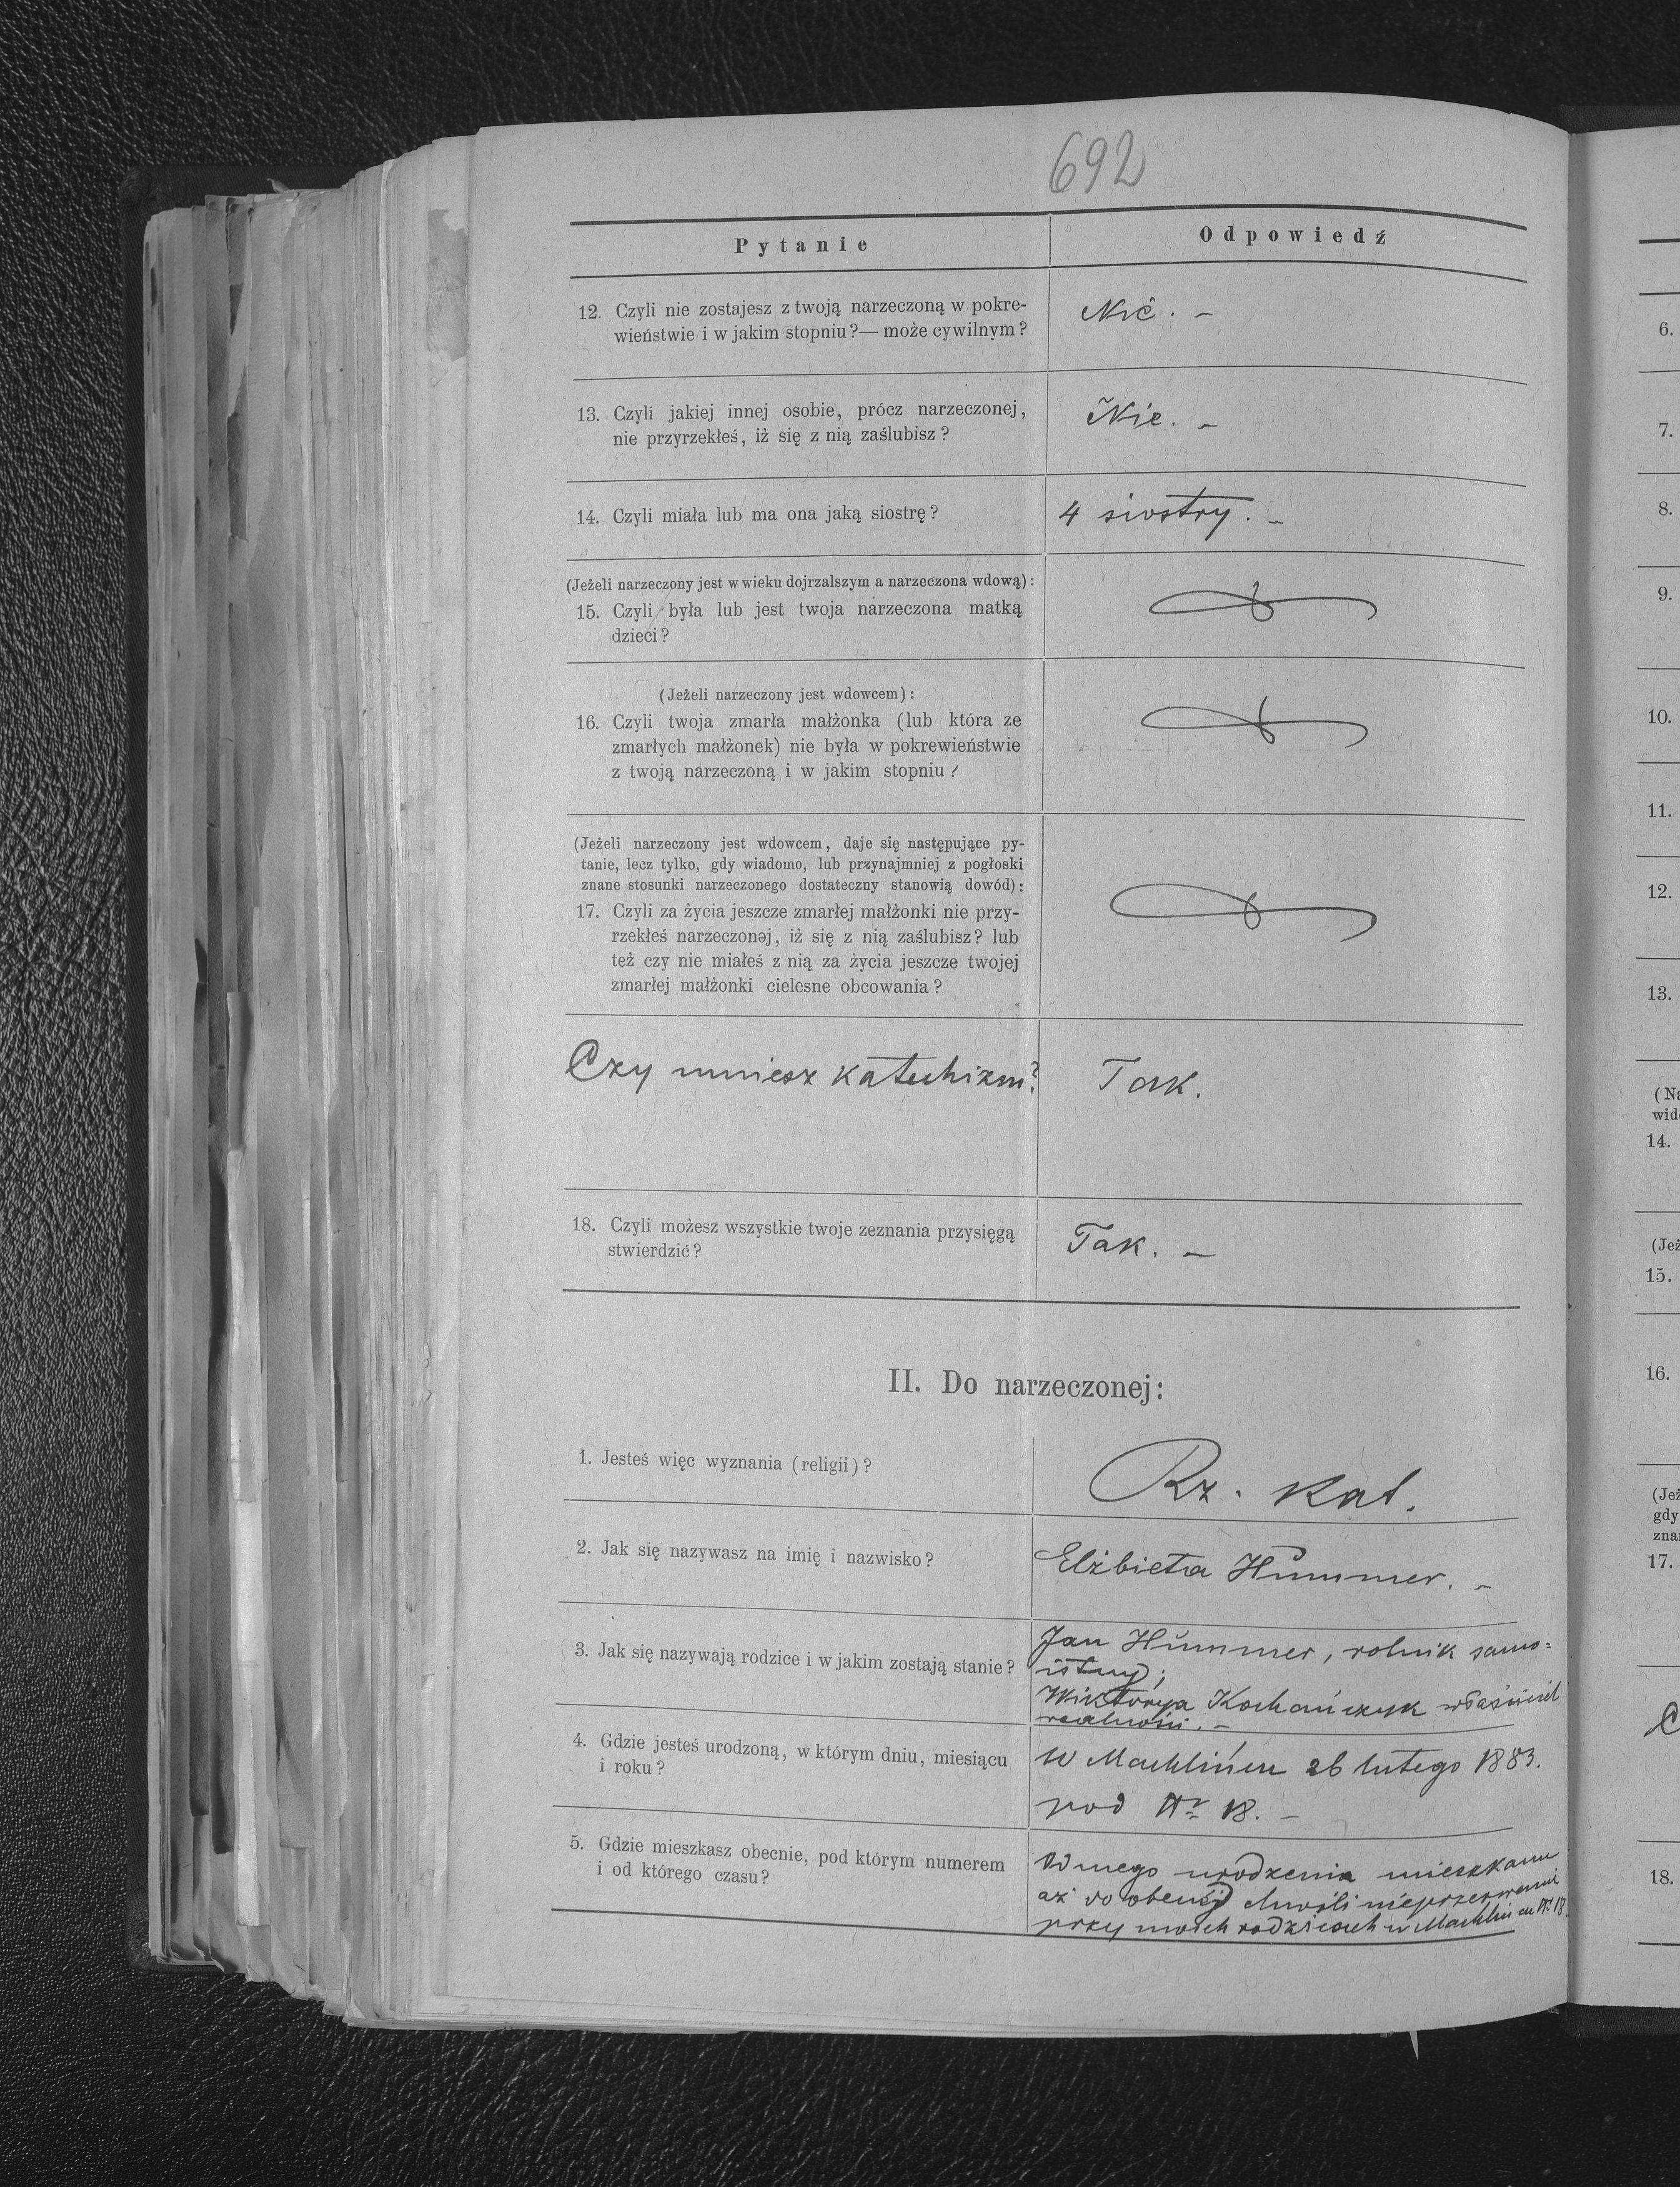 692
Pytanie
Odpowiedź
12. Czyli nie zostajesz z twoją narzeczoną w pokre-
wieństwie i w jakim stopniu?— może cywilnym?
Nie. –
13. Czyli jakiej innej osobie, prócz narzeczonej,
nie przyrzekłeś, iż się z nią zaślubisz?
Nie. –
14. Czyli miała lub ma ona jaką siostrę?
4 siostry. –
(Jeżeli narzeczony jest w wieku dojrzalszym a narzeczona wdową):
15. Czyli była lub jest twoja narzeczona matką
dzieci?
(Jeżeli narzeczony jest wdowcem):
16. Czyli twoja zmarła małżonka (lub która ze
zmarłych małżonek) nie była w pokrewieństwie
z twoją narzeczoną i w jakim stopniu?
(Jeżeli narzeczony jest wdowcem, daje się następujące py-
tanie, lecz tylko, gdy wiadomo, lub przynajmniej z pogłoski
znane stosunki narzeczonego dostateczny stanowią dowód):
17. Czyli za życia jeszcze zmarłej małżonki nie przy-
rzekłeś narzeczonej, iż się z nią zaślubisz? lub
też czy nie miałeś z nią za życia jeszcze twojej
zmarłej małżonki cielesne obcowania?
Czy umiesz katechizm?
Tak.
18. Czyli możesz wszystkie twoje zeznania przysięgą
stwierdzić?
Tak. –
II. Do narzeczonej:
1. Jesteś więc wyznania (religii)?
Rz. kat.
2. Jak się nazywasz na imię i nazwisko?
Elżbieta Hummer. –
3. Jak się nazywają rodzice i w jakim zostają stanie?
Jan Hummer, rolnik samo=
istny;
Wiktorya Kochańczyk właściciel
realności. –
4. Gdzie jesteś urodzoną, w którym dniu, miesiącu
i roku?
W Machlińcu 26 lutego 1883.
pod Nr 18. –
5. Gdzie mieszkasz obecnie, pod którym numerem
i od którego czasu?
Od mego urodzenia mieszkam
aż do obecnej chwili nieprzerwanie
przy moich rodzicach w Machlińcu Nr 18.
6.
7.
8.
9.
10.
11.
12.
13.
(Na
wid
14.
(Jeż
15.
16.
(Jeż
gdy
zna
17.
C
18.